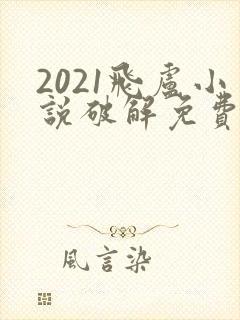 2021飛盧小
說破解免費
風言染